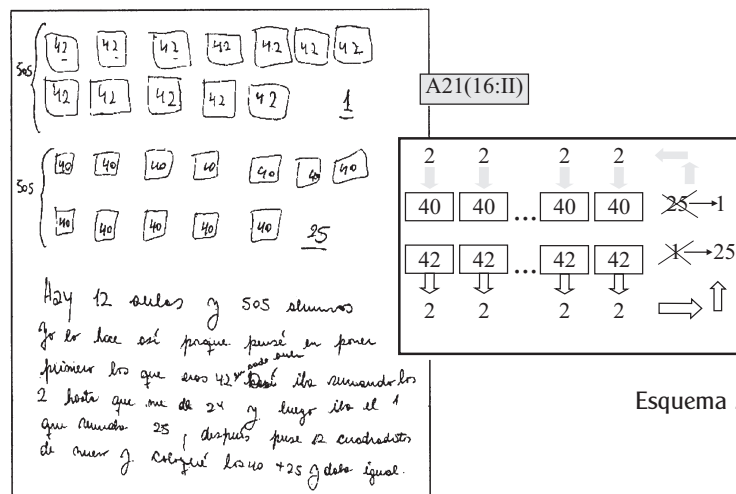 505
42 42 42 42 42 42 42
42 42 42 42 42 1
505
40 40 40 40 40 40 40
40 40 40 40 40 25
Hay 12 aulas y 505 alumnos
Yo lo hace así porque pensé en poner
primero los que eran 42 en cada aula iba sumando los
2 hasta que me de 24 y luego iba el 1
que sumaba 25, después puse 12 cuadraditos
de nuevo y coloqué los 40 + 25 y daba igual.
A21(16:II)
2 2 2 2
40 40 ... 40 40 25 → 1
42 42 ... 42 42 1 → 25
2 2 2 2
Esquema